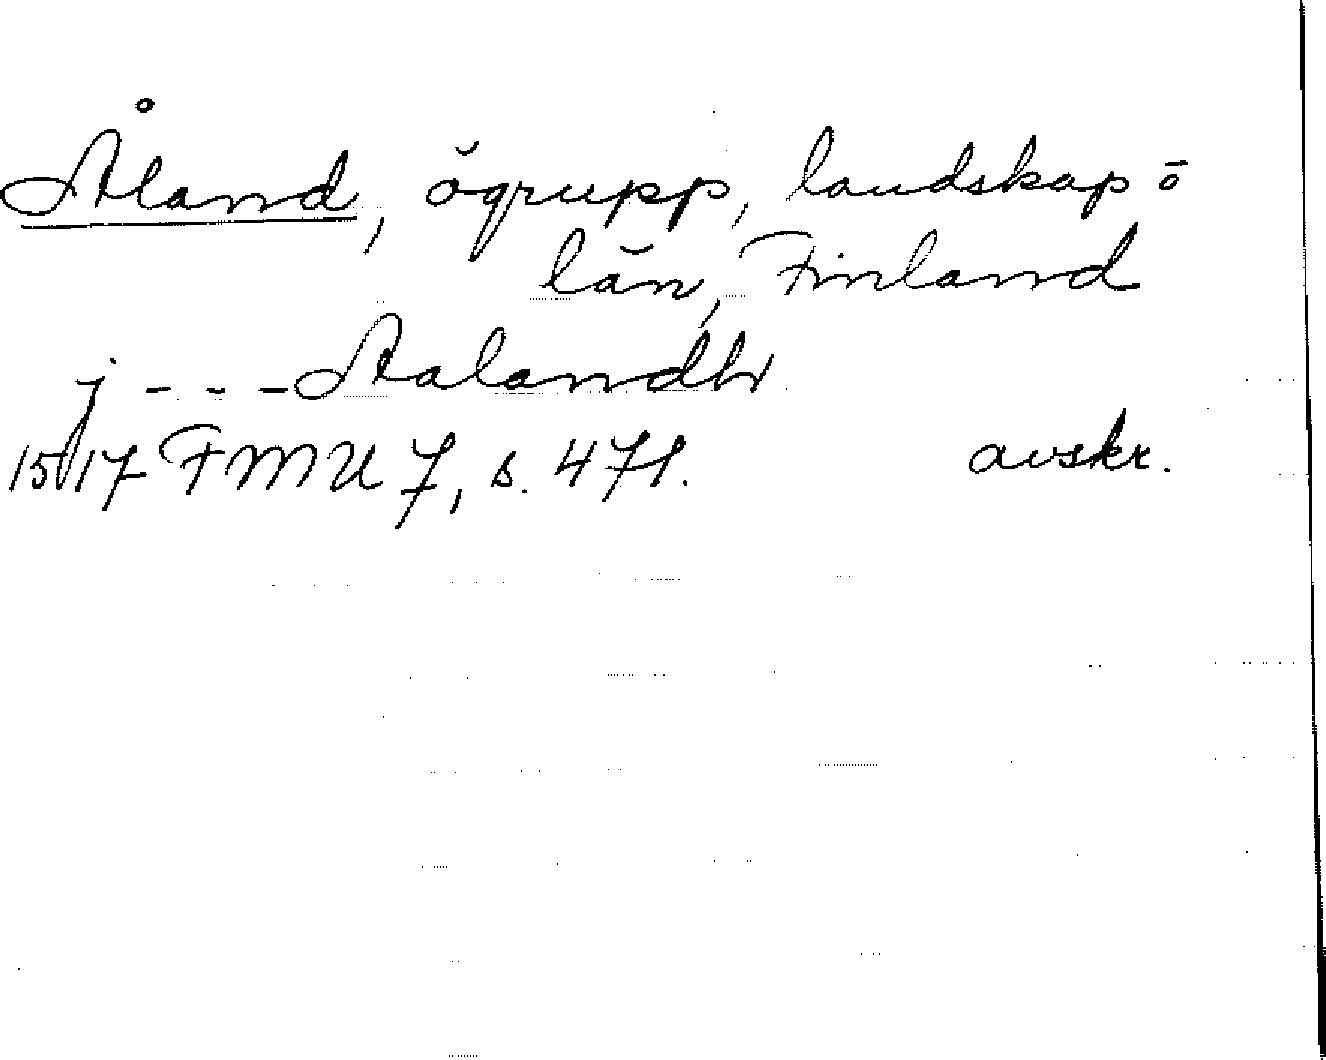 Åland, ögrupp, landskap o
län, Finland
j - - - Aalandh
1517 FMU 7, s. 471. avskr.